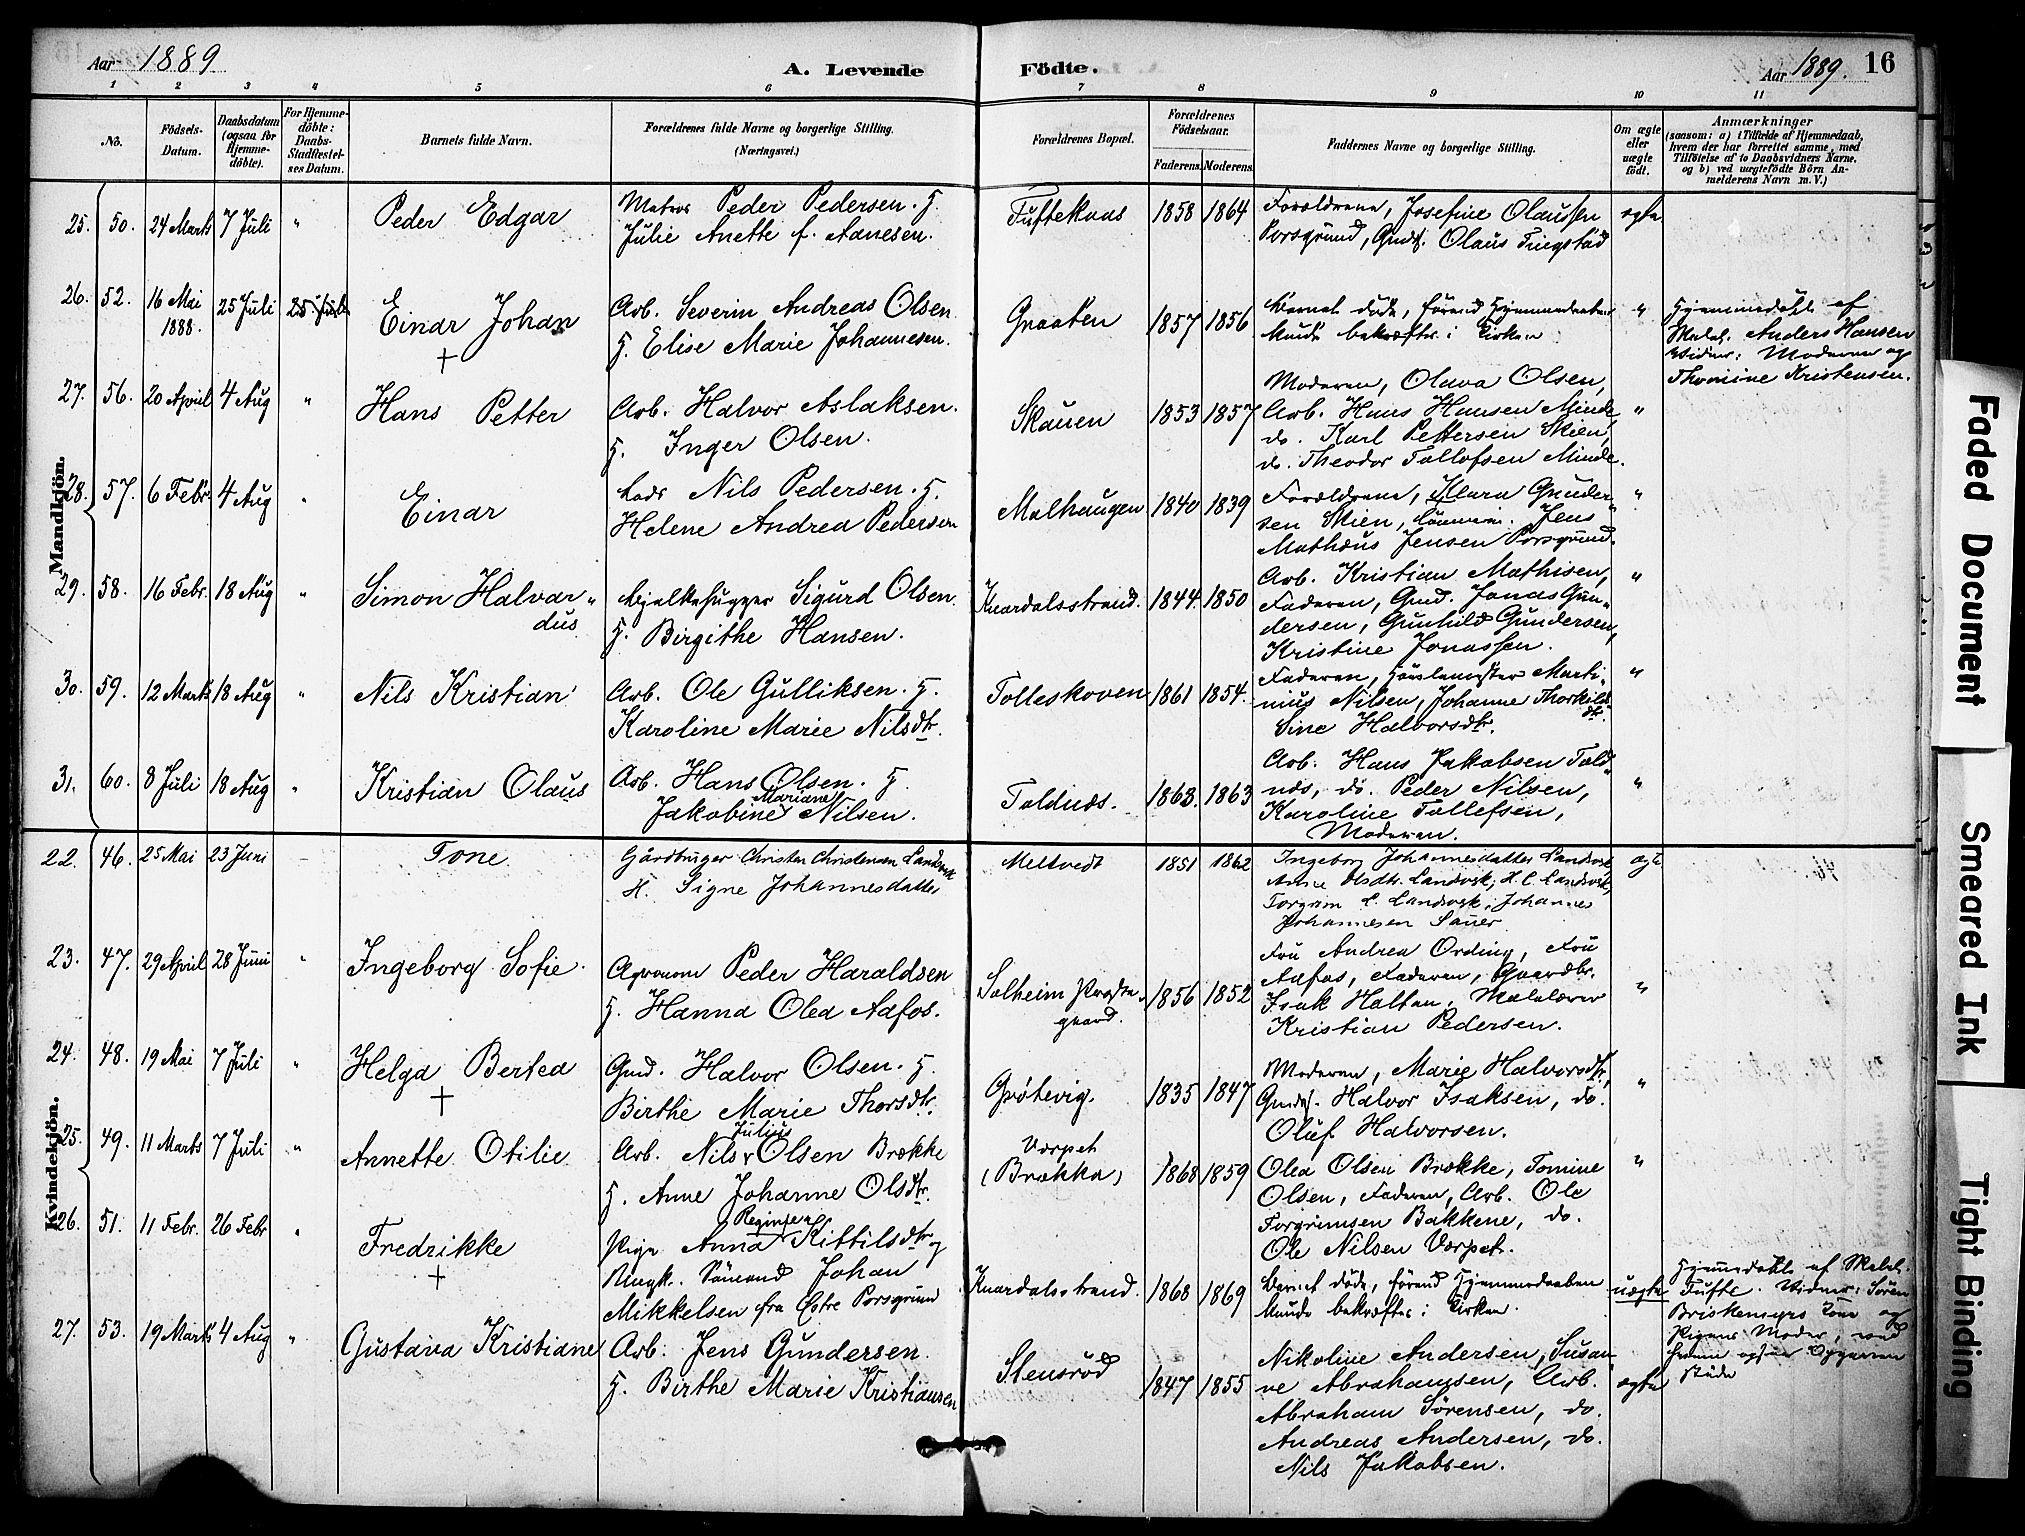 Aar 1889
A. Levende Födte.
Aar 1889. 16
1 2 3 4 5 6 7 8 9 10 11
No.
Födsels-Datum.
Daabsdatum (ogsaa for Hjemme-döbte).
For Hjemme-döbte: Daabs-Stadfæstel-ses Datum.
Barnets fulde Navn.
Forældrenes fulde Navne og borgerlige Stilling.
(Næringsvei.)
Forældrenes Bopæl.
Forældrenes Födselsaar.
Faderens. Moderens.
Faddernes Navne og borgerlige Stilling.
Om ægte eller uægte födt.
Anmærkninger
(saasom: a) i Tilfælde af Hjemmedaab,
hvem der har forrettet samme, med
Tilföielse af to Daabsvidners Navne.
og b) ved uægtefödte Börn An-
melderens Navn m. V.)
Mandkjön.
25. 50. 24 Marts 7 Juli " Peder Edgar
Matros Peder Pedersen. H.
Julie Anette f. Aanesen.
Tuftekaas 1858 1864
Forældrene, Josefine Olaussen
Porsgrund, Gmdsf. Olaus Tingstad
ægte
26. 52. 16 Mai 1888. 25 Juli 25 Juli Einar Johan +
Arb. Severin Andreas Olsen
H. Elise Marie Johannesen.
Graaten 1857 1856
Barnet døde, førend Hjemmedaaben
kunde bekræftes i Kirken
"
Hjemmedøbt af
Skolel. Anders Hansen
Vidner: Moderen og
Thomine Kristensen.
27. 56. 20 April 4 Aug " Hans Petter
Arb. Halvor Aslaksen.
H. Inger Olsen.
Skauen 1853 1857
Moderen, Olava Olsen,
Arb. Hans Hansen Minde
do. Karl Pettersen Skien,
do. Theodor Tollofsen Minde.
"
28. 57. 6 Febr 4 Aug " Einar
Lods Nils Pedersen. H.
Helene Andrea Pedersen
Malhaugen 1840 1839
Forældrene, Klara Gunder-
sen Skien, Jens
Mathæus Jensen Porsgrund.
"
29. 58. 16 Febr. 18 Aug " Simon Halvar-
dus
Bjelkehugger Sigurd Olsen.
H. Birgithe Hansen.
Knardalsstrand. 1844. 1850
Arb. Kristian Mathisen,
Faderen, Gmd. Jonas Gun-
dersen, Gunhild Gundersen,
Kristine Jonassen.
"
30. 59. 12 Marts 18 Aug " Nils Kristian
Arb. Ole Gulliksen. H.
Karoline Marie Nilsdtr.
Tolleskoven 1861 1854.
Faderen, Marti-
nius Nilsen, Johanne Thorkilds
dtr.
Sine Halvorsdtr.
"
31. 60. 8 Juli 18 Aug " Kristian Olaus
Arb. Hans Olsen. H.
Mariane
Jakobine Nilsen.
Toldnæs. 1863. 1863
Arb. Hans Jakobsen Told-
næs, do. Peder Nilsen,
Karoline Tollefsen,
Moderen.
"
Kvindekjön.
22. 46. 25 Mai 23 Juni Tone
Gårdbruger Christen Christensen Landsverk
H. Signe Johannesdatter
Meltvedt 1851 1862
Ingeborg Johannesdatter Landsverk
Anne Olsdtr. Landsverk, H. C. Landsverk,
Torgrim C. Landsverk, Johannes
Johannesen Sauer
ægte
23. 47. 29 April 28 Juni " Ingeborg Sofie.
Agronom Peder Haraldsen
H. Hanna Olea Aafos.
Solheim Præste-
gaard. 1856 1852
Fru Andrea Ording, Fru
Aafos, Faderen, Gaardbr.
Isak Holtan, Skolelærer
Kristian Pedersen.
"
24. 48. 19 Mai 7 Juli " Helga Bertea +
Gmd. Halvor Olsen. H.
Birthe Marie Thorsdtr.
Grøtevig. 1835 1847
Moderen, Marie Halvorsdtr,
Gmdsf. Halvor Isaksen, do.
Oluf Halvorsen.
"
25. 49. 11 Marts 7 Juli " Annette Otilie
Julius
Arb. Nils Olsen Brække
H. Anne Johanne Olsdtr.
Værpet
(Brækka) 1868 1859
Olea Olsen Brække, Tomine
Olsen, Faderen, Arb. Ole
Torgrimsen Bakkene, do.
Ole Nilsen Værpet.
"
26. 51. 11 Febr. 26 Febr " Fredrikke +
Regine
Pige Anna Kittilsdtr og
Ungk. Sømand Johan
Mikkelsen fra Østre Porsgrund
Knardalsstrand. 1868 1869
Barnet døde, førend Hjemmedaaben
kunde bekræftes i Kirken.
uægte
Hjemmedøbt af Skolel.
Tufte. Vidner: Søren
Briskemyrs Kone og
Pigens Moder,
27. 53. 19 Marts 4 Aug " Gustava Kristiane
Arb. Jens Gundersen.
H. Birthe Marie Kristiansen
Stensrød 1847 1855
Nikoline Andersen, Susan-
ne Abrahamsen, Arb.
Abraham Sørensen, do.
Andreas Andersen, do.
Nils Jakobsen.
ægte
Faded Document
Smeared Ink
Tight Binding